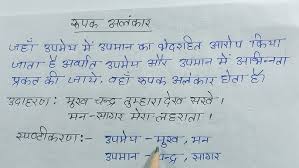 रूपक अलंकार
जहाँ उपमेय में उपमान का भेदरहित आरोप किया
जाता है अर्थात उपमेय और उपमान में अभिन्नता
प्रकट की जाये। वहाँ रूपक अलंकार होता है।
उदाहरण: मुख चन्द्र तुम्हारा देख सखे।
मन-सागर मेरा लहराता।
स्पष्टीकरण:- उपमेय - मुख, मन
उपमान चन्द्र, सागर